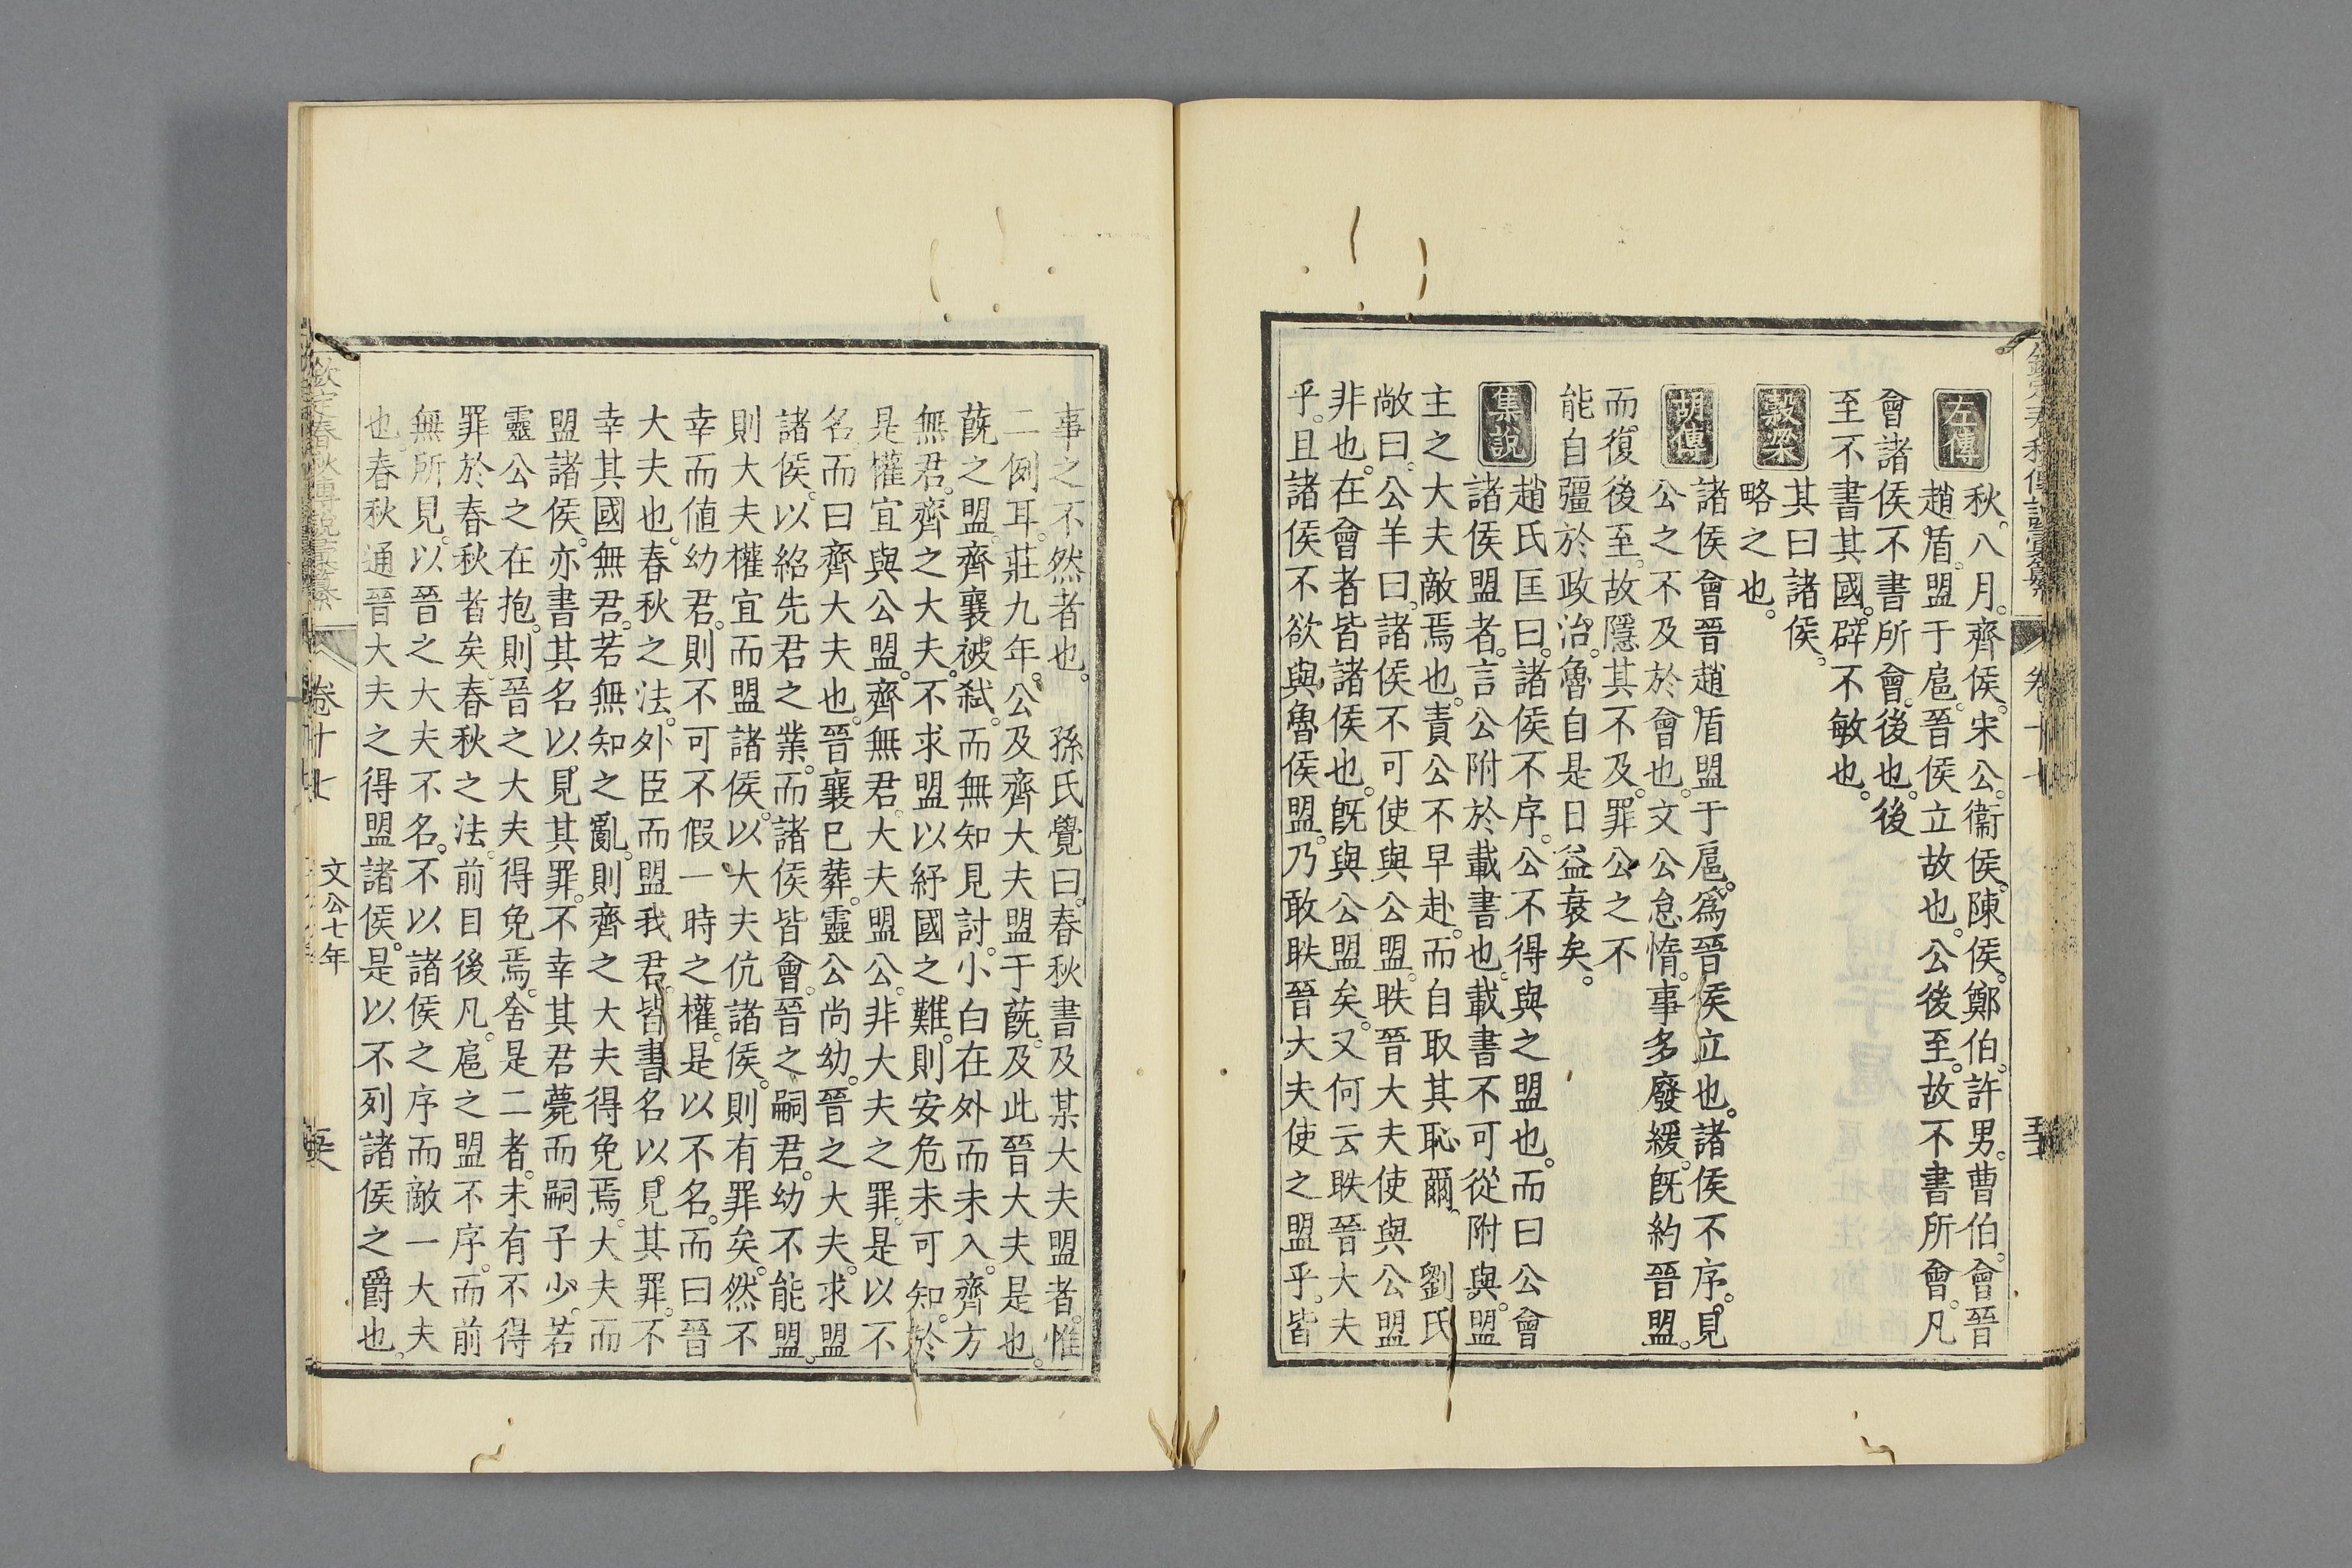 左傳
秋。八月。齊侯。宋公。衞侯。陳侯。鄭伯。許男。曹伯。會晉
趙盾。盟于扈。晉侯立故也。公後至。故不書所會。凡
會諸侯不書所會。後也。後
至不書其國。辟不敏也。
穀梁
其曰諸侯。
略之也。
胡傳
諸侯會晉趙盾盟于扈。爲晉侯立也。諸侯不序。見
公之不及於會也。文公怠惰。事多廢緩。旣約晉盟。
而復後至。故隱其不及。罪公之不
能自彊於政治。魯自是日益衰矣。
集說
趙氏匡曰。諸侯不序。公不得與之盟也。而曰公會
諸侯盟者。言公附於載書也。載書不可從附與。盟
主之大夫敵焉也。責公不早赴。而自取其恥爾。　劉氏
敞曰。公羊曰。諸侯不可使與公盟。眣晉大夫使與公盟
非也。在會者皆諸侯也。旣與公盟矣。又何云眣晉大夫
乎。且諸侯不欲與魯侯盟。乃敢眣晉大夫使之盟乎。皆
事之不然者也。　孫氏覺曰。春秋書及某大夫盟者。惟
二例耳。莊九年。公及齊大夫盟于蔇。及此晉大夫是也。
蔇之盟。齊襄。被弒。而無知見討。小白在外而未入。齊方
無君。齊之大夫。不求盟以紓國之難。則安危未可知。於
是權宜與公盟。齊無君。大夫盟公。非大夫之罪。是以不
名。而曰齊大夫也。晉襄已葬。靈公尚幼。晉之大夫。求盟
諸侯。以紹先君之業。而諸侯皆會。晉之嗣君。幼不能盟。
則大夫權宜而盟諸侯。以大夫伉諸侯。則有罪矣。然不
幸而値幼君。則不可不假一時之權。是以不名。而曰晉
大夫也。春秋之法。外臣而盟我君。皆書名以見其罪。不
幸其國無君。若無知之亂。則齊之大夫得免焉。大夫而
盟諸侯。亦書其名以見其罪。不幸其君薨而嗣子少。若
靈公之在抱。則晉之大夫得免焉。舍是二者。未有不得
罪於春秋者矣。春秋之法。前目後凡。扈之盟不序。而前
無所見。以晉之大夫不名。不以諸侯之序而敵一大夫
也。春秋通晉大夫之得盟諸侯。是以不列諸侯之爵也。
欽定春秋傳說彙纂
卷十七
文公七年